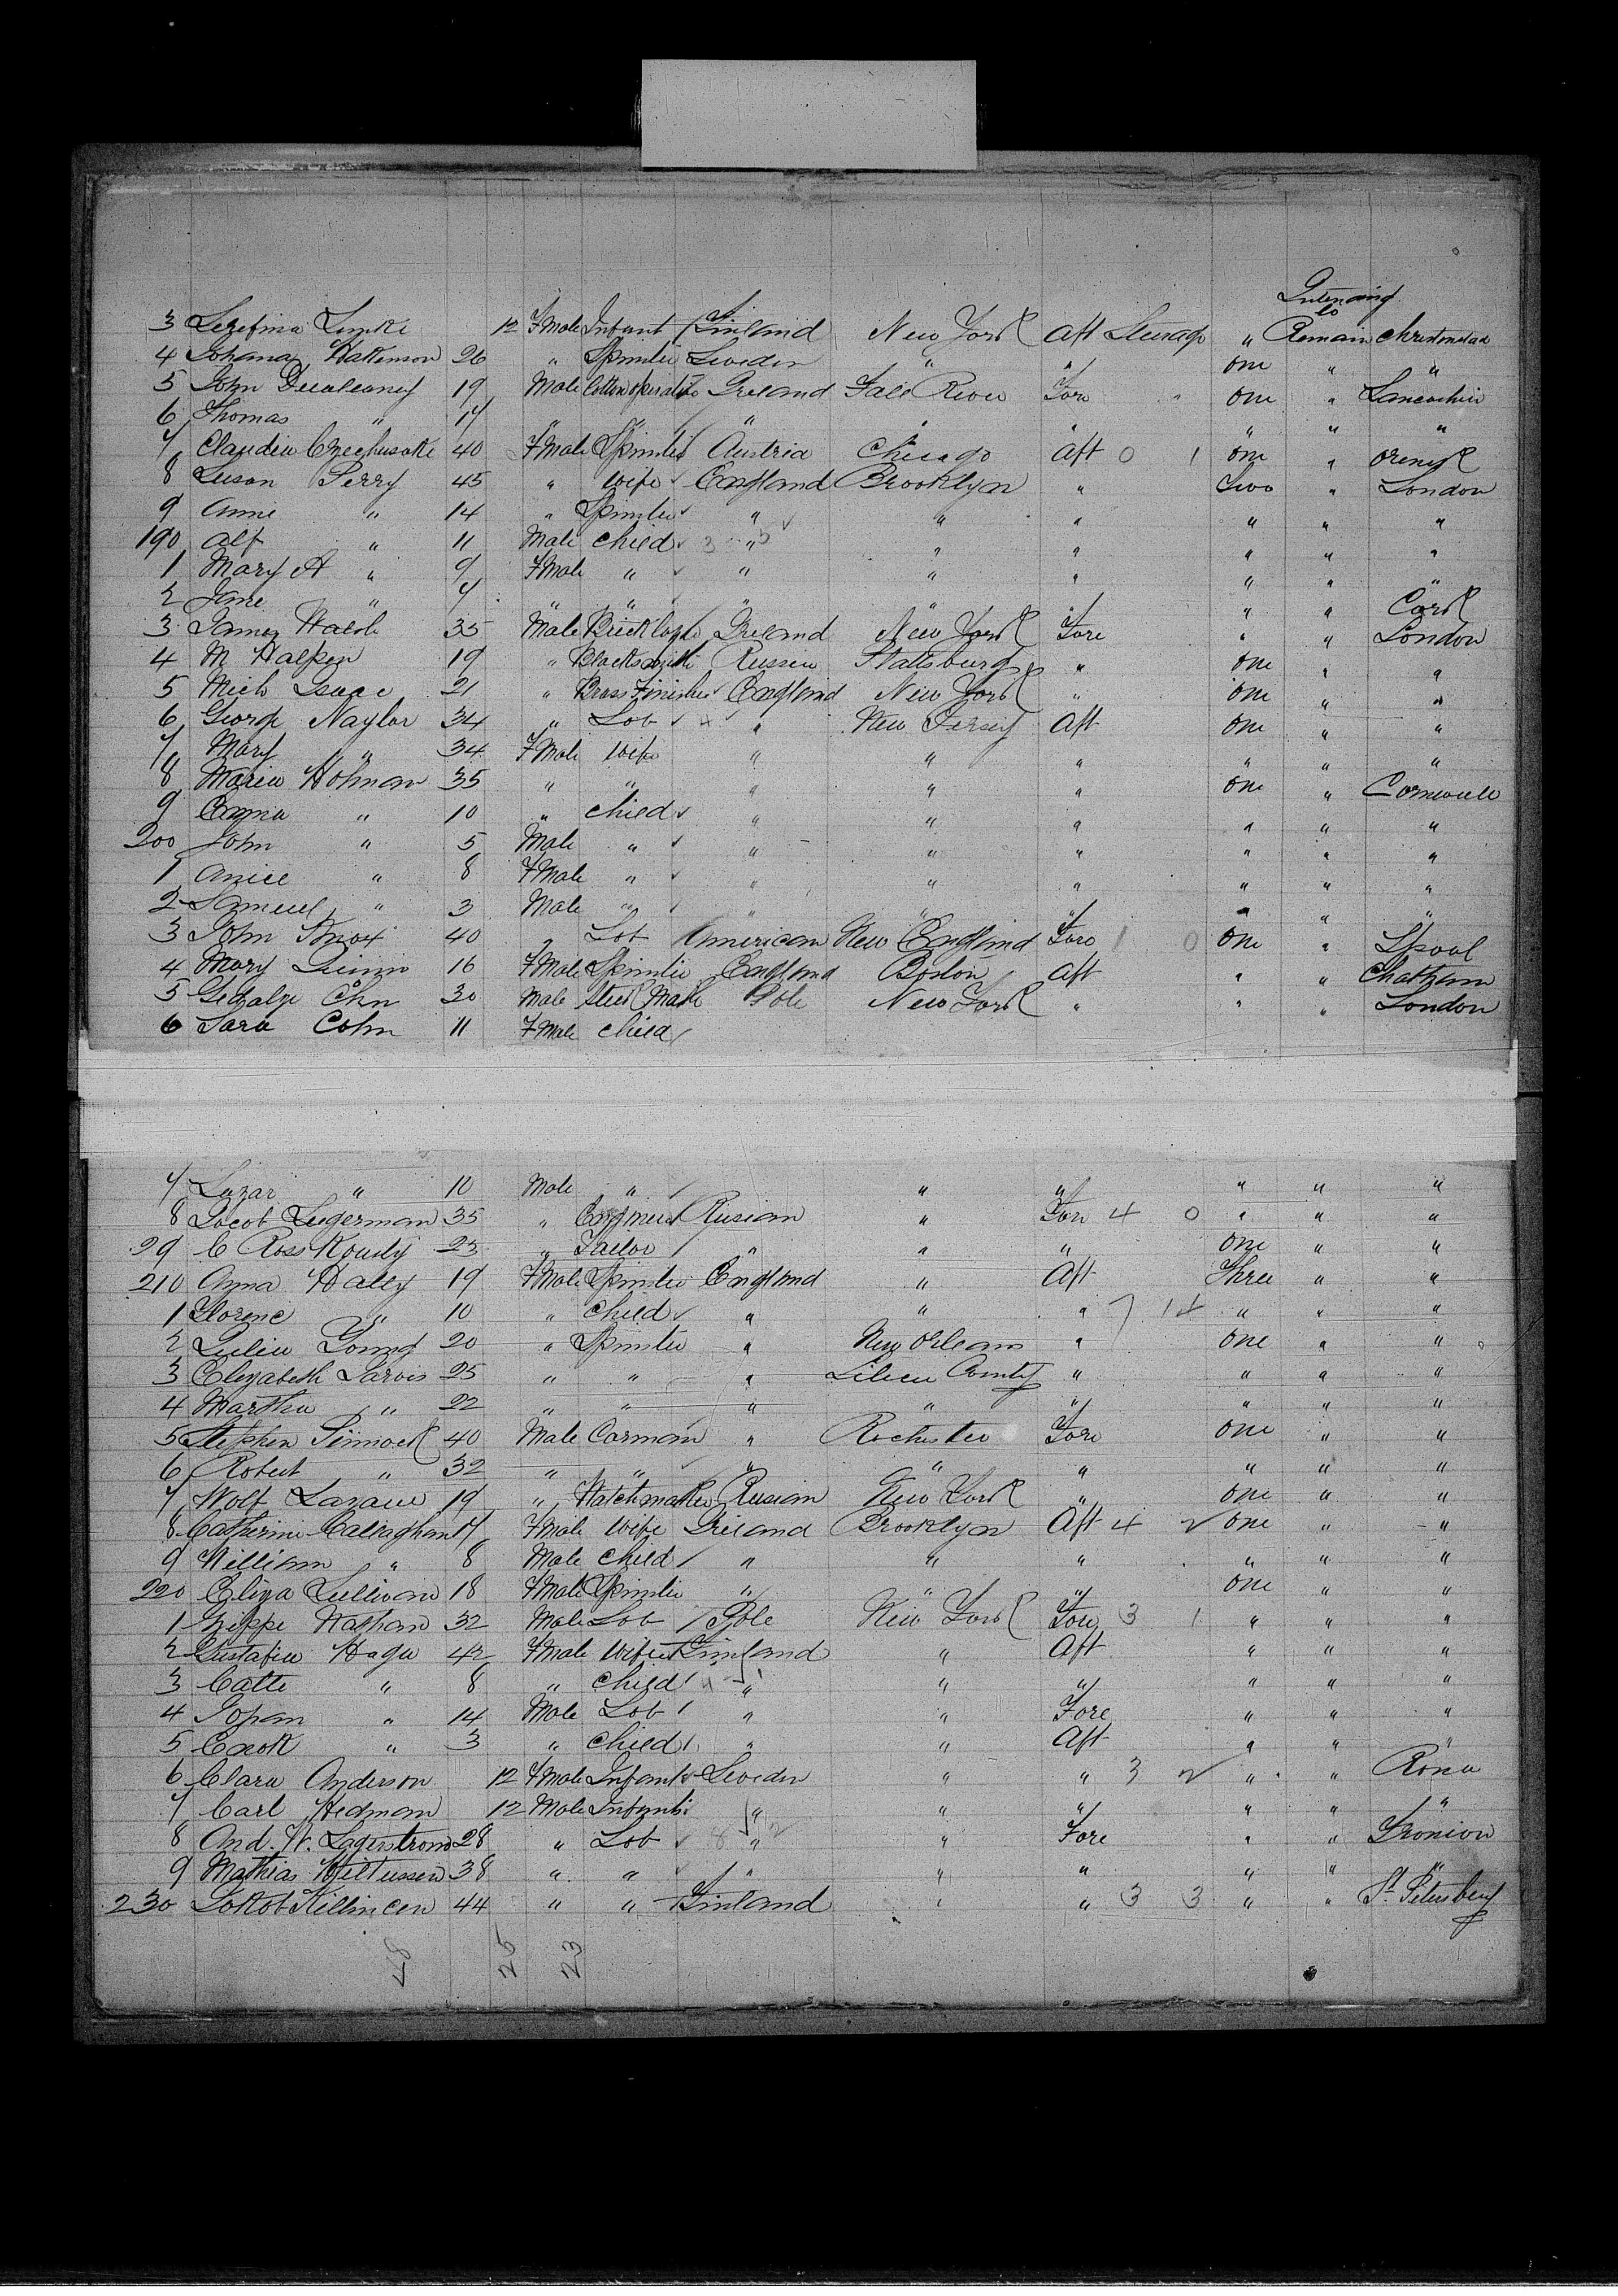 Intending
to
3 Lezefina Limke 12 F Male Infant Finland New York Aft Steerage " Remain Christinestad
4 Johana Hakenson 26 " Spinster Sweden " " One " "
5 John Decoleaney 19 Male Cotton operative Ireland Fall River Fore " One " Lancashire
6 Thomas " 17 " " " " " " " "
7 40 F Male Spinster Austria Chicago Aft 0 1 One "
8 Susan Perry 45 " Wife England Brooklyn " Two " London
9 Anne " 14 " Spinster " " " " " "
190 Alf " 11 Male Child 3 5 " " " " " "
1 Mary A " 9 F Male " " " " " " "
2 Jane " 7 " " " " " " " Cork
3 James Walsh 35 Male Bricklayer Ireland New York Fore " " London
4 M Halpen 19 " Blacksmith Russia Stattsburg " One " "
5 Mich Isaac 21 " Brass Finisher England New York " One " "
6 George Naylor 34 " Lab " New Jersey Aft One " "
7 Mary " 34 F Male Wife " " " " " "
8 Maria Holman 35 " " " " " One " Cornwall
9 Emma " 10 " Child " " " " " "
200 John " 5 Male " " " " " " "
1 Anice " 8 F Male " " " " " " "
2 Samuel " 3 Male " " " " " " "
3 John Knox 40 " Lab American New England Fore 1 0 One " Lpool
4 Mary Quinn 16 F Male Spinster England Boston Aft " " Chatham
5 Gedalze Chn 30 Male Pole New York " " " London
6 Sara Cohn 11 F Male Child
7 Lazar " 10 Male " " " " " "
8 Jacob Legerman 35 " Engineer Rusian " Fore 4 0 " " "
29 C Ross Kously 23 " Tailor " " " One " "
210 Anna Haley 19 F Male Spinster England " Aft Three " "
1 Florenc " 10 " Child " " " 7 14 " " "
2 Lulia Young 20 " Spinster " New Orleans " One " "
3 Elizabeth Jarvis 25 " " " County " " " "
4 Martha " 22 " " " " " " " "
5 Stephen Simmock 40 Male Carman " Rochester Fore One " "
6 Robert " 32 " " " " " " " "
7 Wolf Lazare 19 " Watchmaker Rusian New York " One " "
8 Catherine Callaghan 17 F Male Wife Ireland Brooklyn Aft 4 2 One " "
9 William " 8 Male Child " " " " " "
220 Eliza Sullivan 18 F Male Spinster " " " One " "
1 Nathan 32 Male Lab Pole New York Fore 3 1 " " "
2 Gustafva Haga 42 F Male Wife Finland " Aft " " "
3 Catte " 8 " Child " " " " " "
4 Johan " 14 Male Lab " " Fore " " "
5 Enok " 3 " Child " " Aft " " "
6 Clara Anderson 12 F Male Infant Sweden " " 3 2 " " Rona
7 Carl Hedman 12 Male Infant " " " " " "
8 And. W. Lagerstrom 28 " Lab 8 12 " " Fore " "
9 Mathias 38 " " " " " " " "
230 44 " " Finland " " 3 3 " " St Petersburg
48 25 23